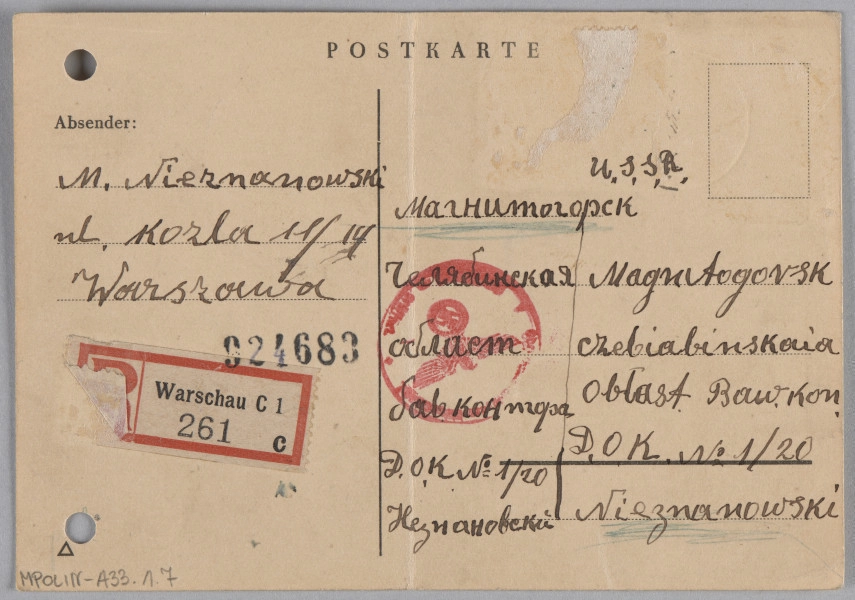 POSTKARTE
Absender:
M. Nieznanowski
ul. Kozla 11/14
Warszawa
924683
Warschau C 1
261 c
U.S.S.R.
Магнитогорск
Челябинская
област
бав контора
D.O.K. № 1/20
Незнановский
Magnitogorsk
Czebiabinskaia
Obłast Baw. Kon.
D.O.K. № 1/20
Nieznanowski
MPOLIN-A33.1.7